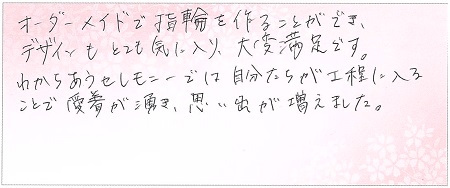 オーダーメイドで指輪を作ることができ、
デザインもとても気に入り、大変満足です。
わかちあうセレモニーでは自分たちが工程に入る
ことで愛着が湧き、思い出が増えました。